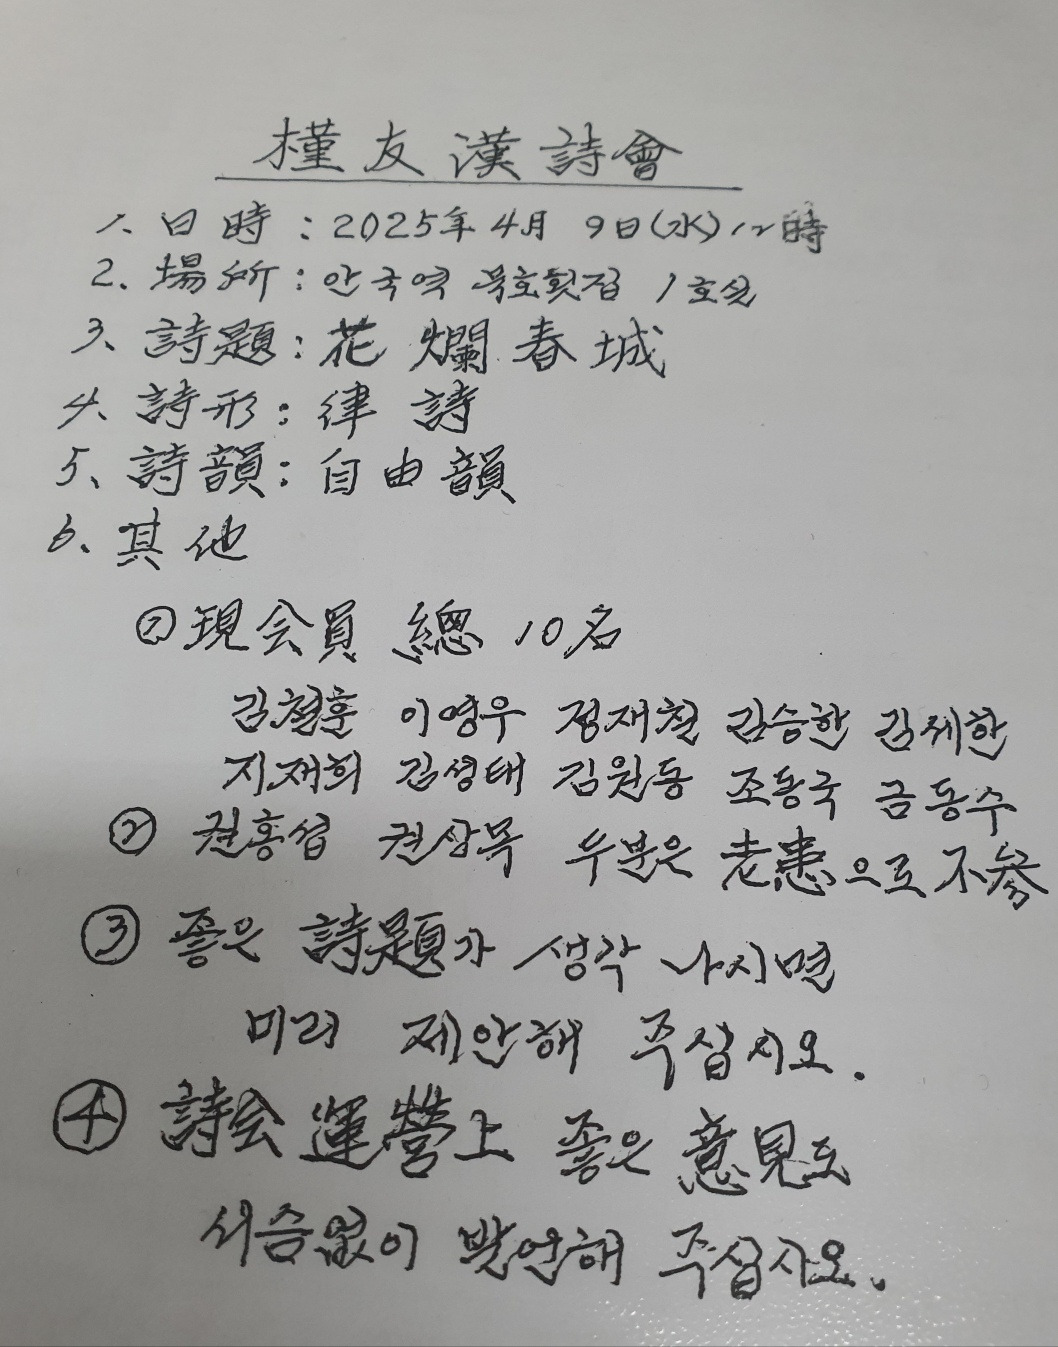 槿友漢詩會
1. 日時 : 2025年 4月 9日(水) 12時
2. 場所 : 안국역 목호횟집 1호실
3. 詩題 : 花爛春城
4. 詩形 : 律詩
5. 詩韻 : 自由韻
6. 其他
① 現会員 總 10名
김철훈 이영우 정재철 김승한 김제한
지재희 김성태 김원동 조동국 금동수
② 권홍섭 권상목 두분은 老患으로 不參
③ 좋은 詩題가 생각 나시면
미리 제안해 주십시오.
④ 詩会 運營上 좋은 意見도
서슴없이 발언해 주십시오.